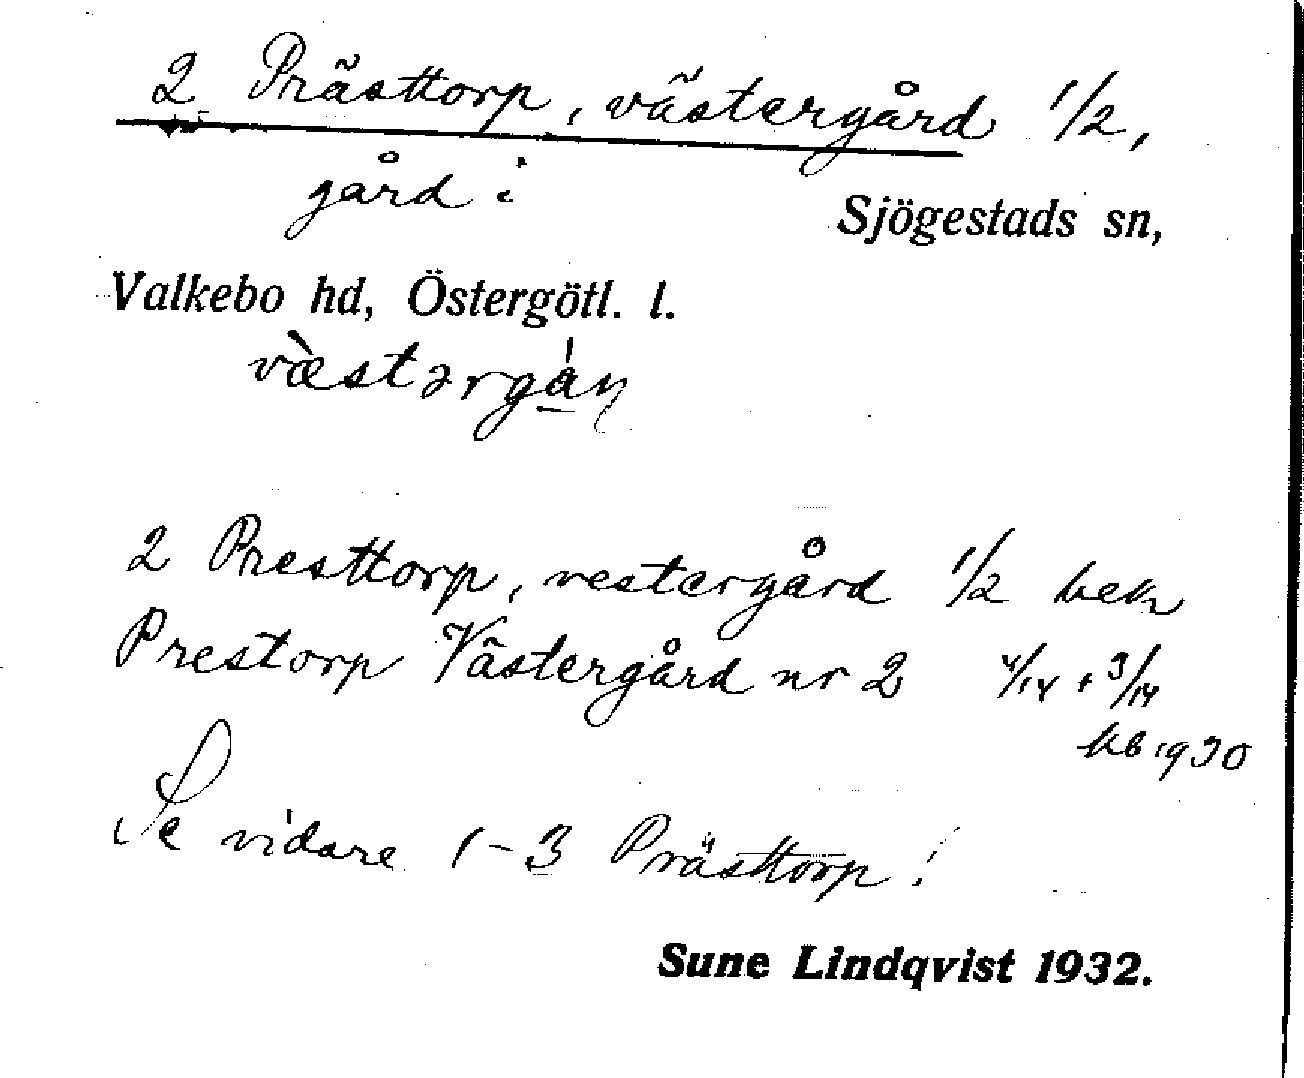 2 Prästtorp, västergård 1/2,
gård i
Sjögestads sn,
Valkebo hd, Östergötl. l.
væ̀stərgá̱ɳ
2 Presttorp, vestergård 1/2 hem
Prestorp Västergård nr 2 4/14 + 3/14
kb 1930
Se vidare 1-3 Prästtorp!
Sune Lindqvist 1932.